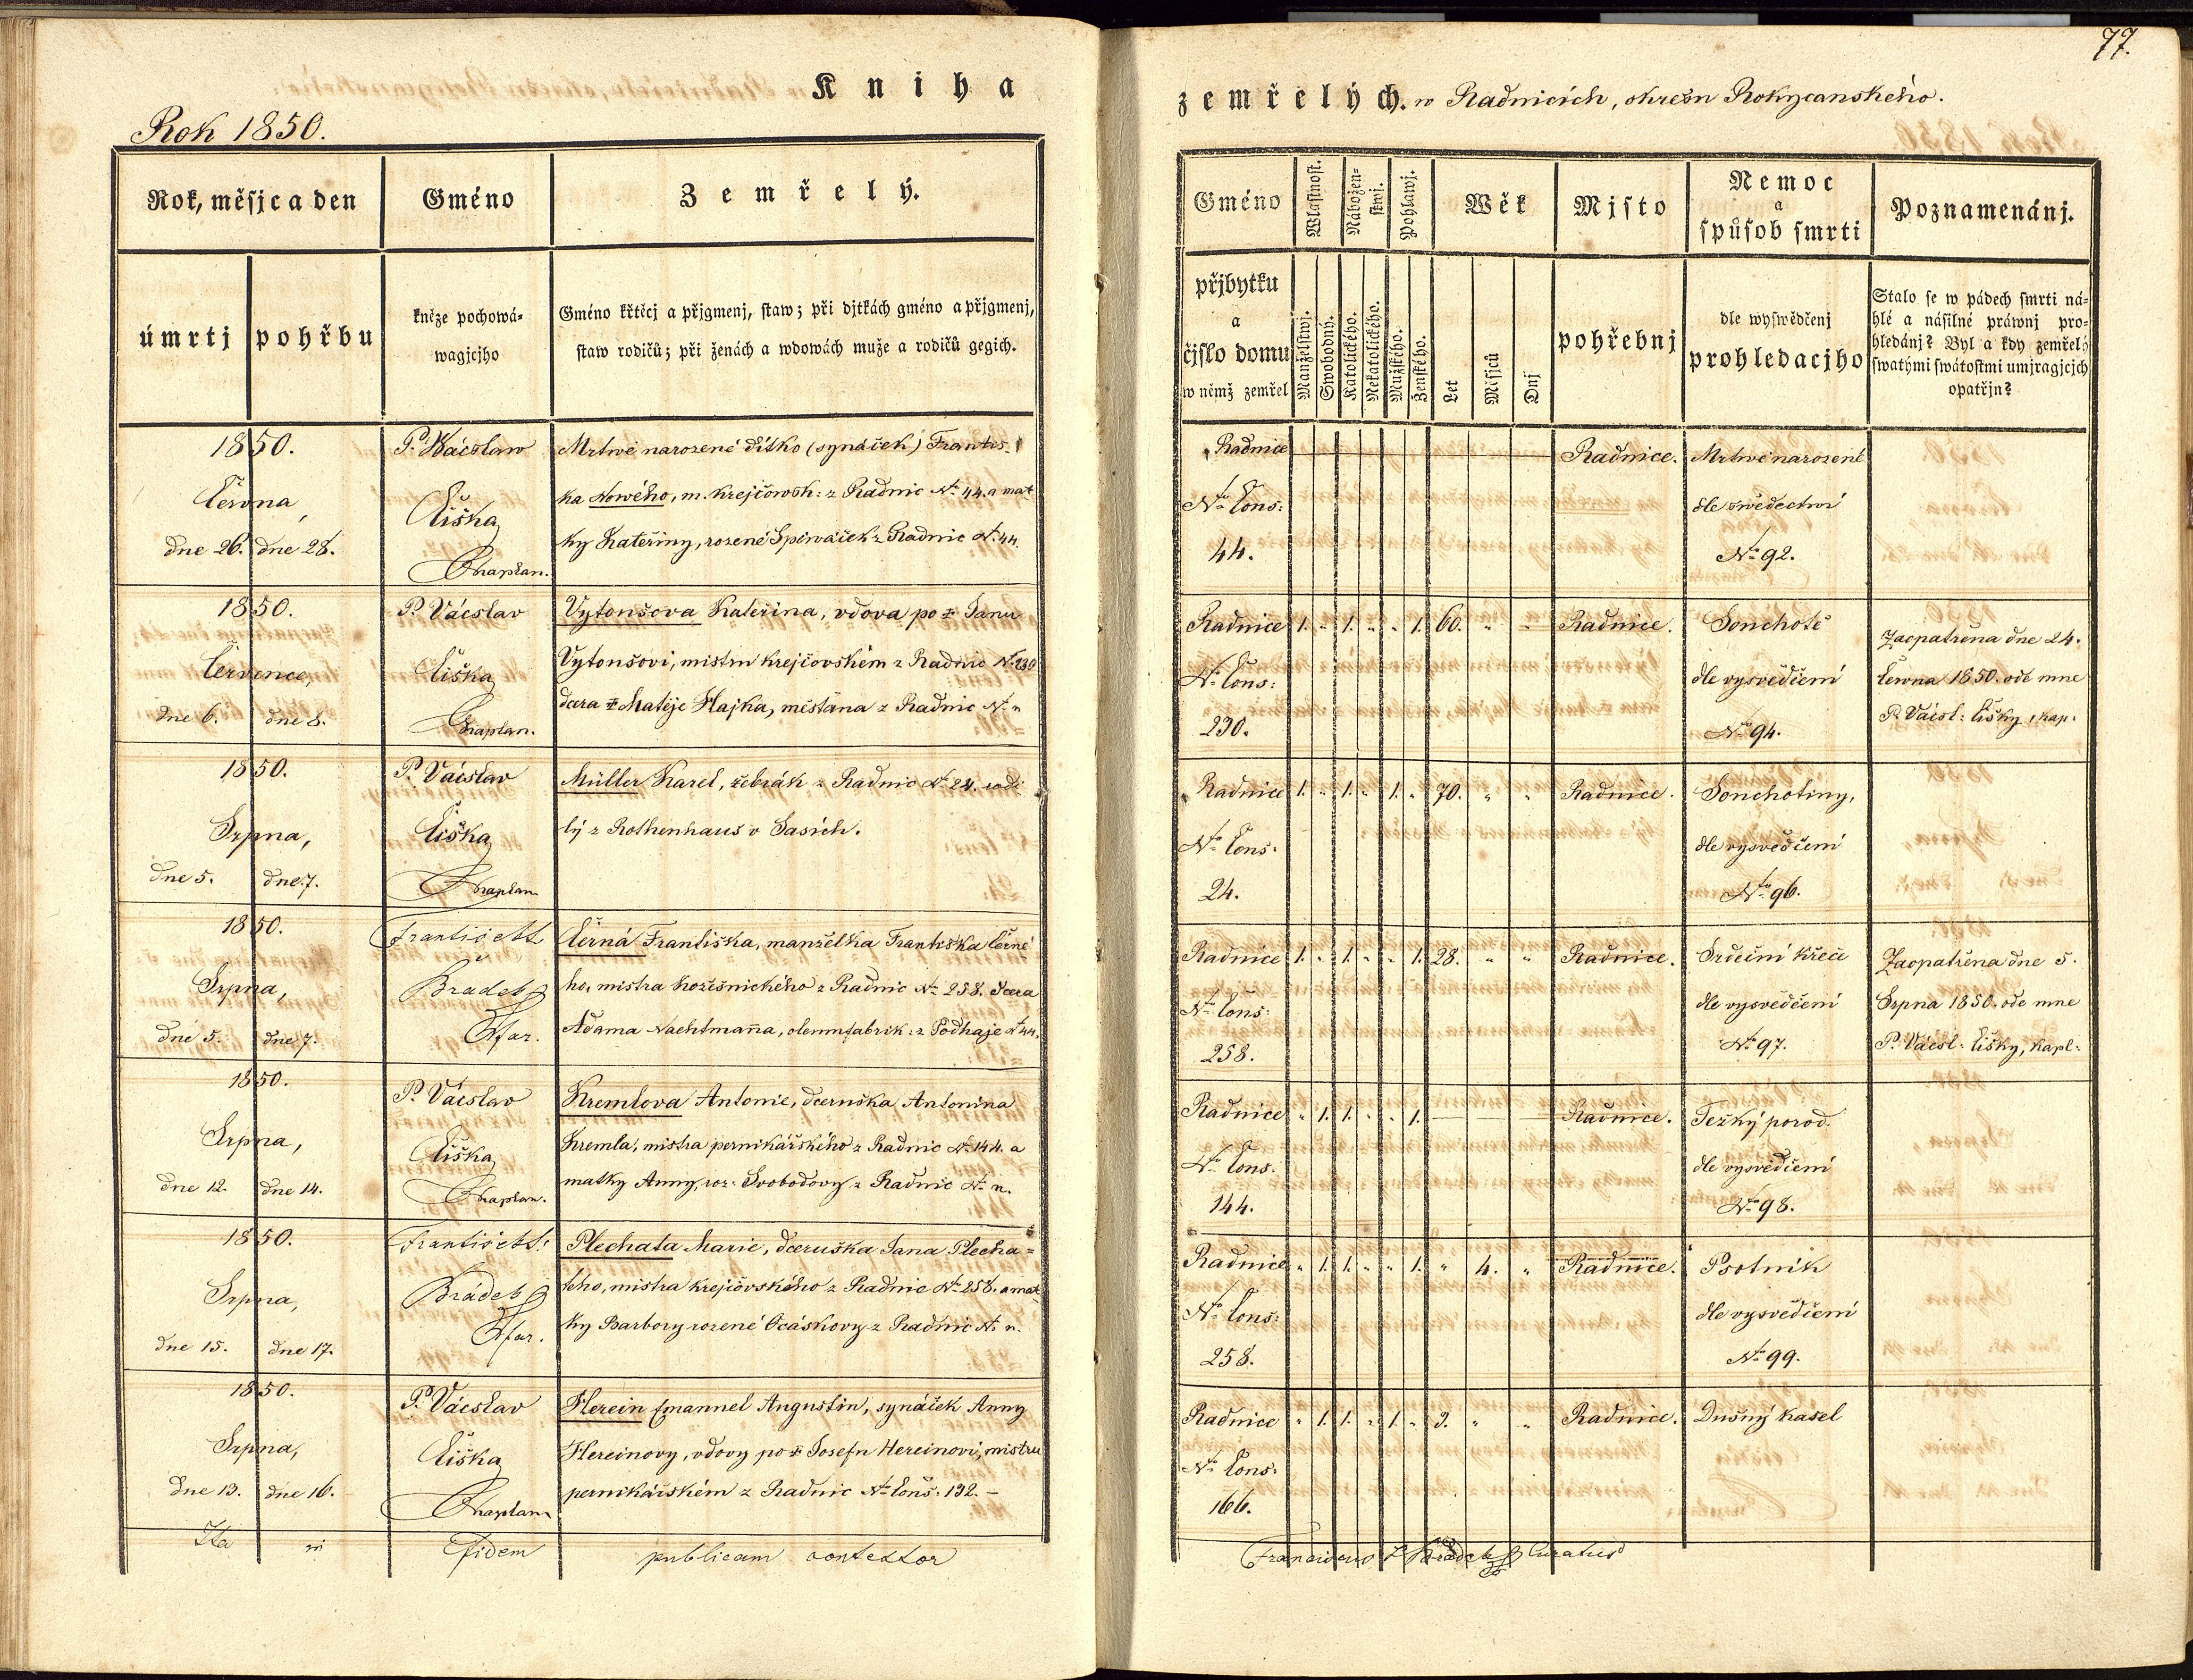 77.
Kniha
zemřelých. w Radnicích, okresu Rokycanského.
Rok 1850.
Rok, měsjc a den
Gméno
Zemřelý.
úmrtj
pohřbu
kněze pochowá-
wagjcjho
Gméno křtěcj a přjgmenj, staw; při djtkách gméno a přjgmenj,
staw rodičů; při ženách a wdowách muže a rodičů gegich.
Gméno
Wlastnost.
Nábožen-
stwj.
Pohlawj.
Wěk
Mjsto
Nemoc
a
spůsob smrti
Poznamenánj.
přjbytku
a
čjslo domu
w němž zemřel
Manželstwj.
Swobodný.
Katolického.
Nekatolického.
Mužského.
Ženského.
Let
Měsjců
Dnj
pohřebnj
dle wyswědčenj
prohledacjho
Stalo se w pádech smrti ná-
hlé a násilné práwnj pro-
hledánj? Byl a kdy zemřelý
swatými swátostmi umjragjcjch
opatřjn?
1850.
Června,
dne 26. dne 28.
P. Wácslaw
Čiška
Chaplan.
Mrtwé narozené dítko (synáček) Františ-
ka Nowého, m. krejčowsk: z Radnic No 44. a mat
ky Kateřiny, rozené Spěwáček z Radnic N. 44.
Radnice
No Cons:
44.
Radnice.
Mrtwé narozené
dle swědectwí
No 92.
1850.
Července,
dne 6. dne 8.
P. Vácslav
Čiška
Chaplan.
Vytoušova Kateřina, vdova po † Janu
Vytoušovi, mistru krejčovském z Radnic N. 230
dcera † Matěje Hajka, měšťana z Radnic No n
Radnice 1. „ 1. „ „ 1. 60. „ „ Radnice.
No Cons:
230.
Souchotě
dle vysvědčení
No 94.
Zaopatřena dne 24.
června 1850. ode mne
P. Vácsl: Čišky, kap:
1850.
Srpna,
dne 5. dne 7.
P. Vácslav
Čiška
Chaplan
Müller Karel, žebrák z Radnic No 24. rodi
lý z Rothenhaus v Sasích.
Radnice 1. „ 1. „ 1. „ 70. „ „ Radnice.
No Cons:
24.
Souchotiny,
dle vysvědčení
No 96.
1850.
Srpna,
dne 5. dne 7.
František
Brádek
Černá Františka, manželka Františka Černé
ho, mistra kožešnického z Radnic No 258. dcera
Adama Nachtmanna, oleumfabrik: z Podhaje No 44.
Radnice 1. „ 1. „ „ 1. 28. „ „ Radnice.
No Cons:
258.
Srdeční křeče
dle vysvědčení
No 97.
Zaopatřena dne 5.
Srpna 1850. ode mne
P. Vácsl: Čišky, kapl:
1850.
Srpna,
dne 12. dne 14.
P. Vácslav
Čiška
Chaplan.
Kremlova Antonie, dceruška Antonína
Kremla, mistra perníkářského z Radnic No 144. a
matky Anny, roz: Svobodovy z Radnic No n.
Radnice „ 1. 1. „ „ 1. Radnice.
No Cons.
144.
Težký porod.
dle vysvědčení
No 98.
1850.
Srpna,
dne 15. dne 17.
Brádek
Plechata Marie, dceruška Jana Plecha=
tého, mistra krejčovského z Radnic No 258. a mat
ky Barbory rozené Ocáskovy z Radnic No n.
Radnice „ 1. 1. „ „ 1. „ 4. „ Radnice.
No Cons:
258.
Psotník
dle vysvědčení
No 99.
1850.
Srpna,
dne 13. dne 16.
P. Vácslav
Čiška
Chaplan
Herein Emanuel Augustin, synáček Anny
Hereinovy, vdovy po † Josefu Hereinovi, mistru
perníkářském z Radnic No Cons: 132. –
Radnice „ 1. 1. „ 1. „ 3. „ „ Radnice.
No Cons:
166.
Dušný kašel
Ita in fidem publicam contestor
Franciscus Brádek Curatus